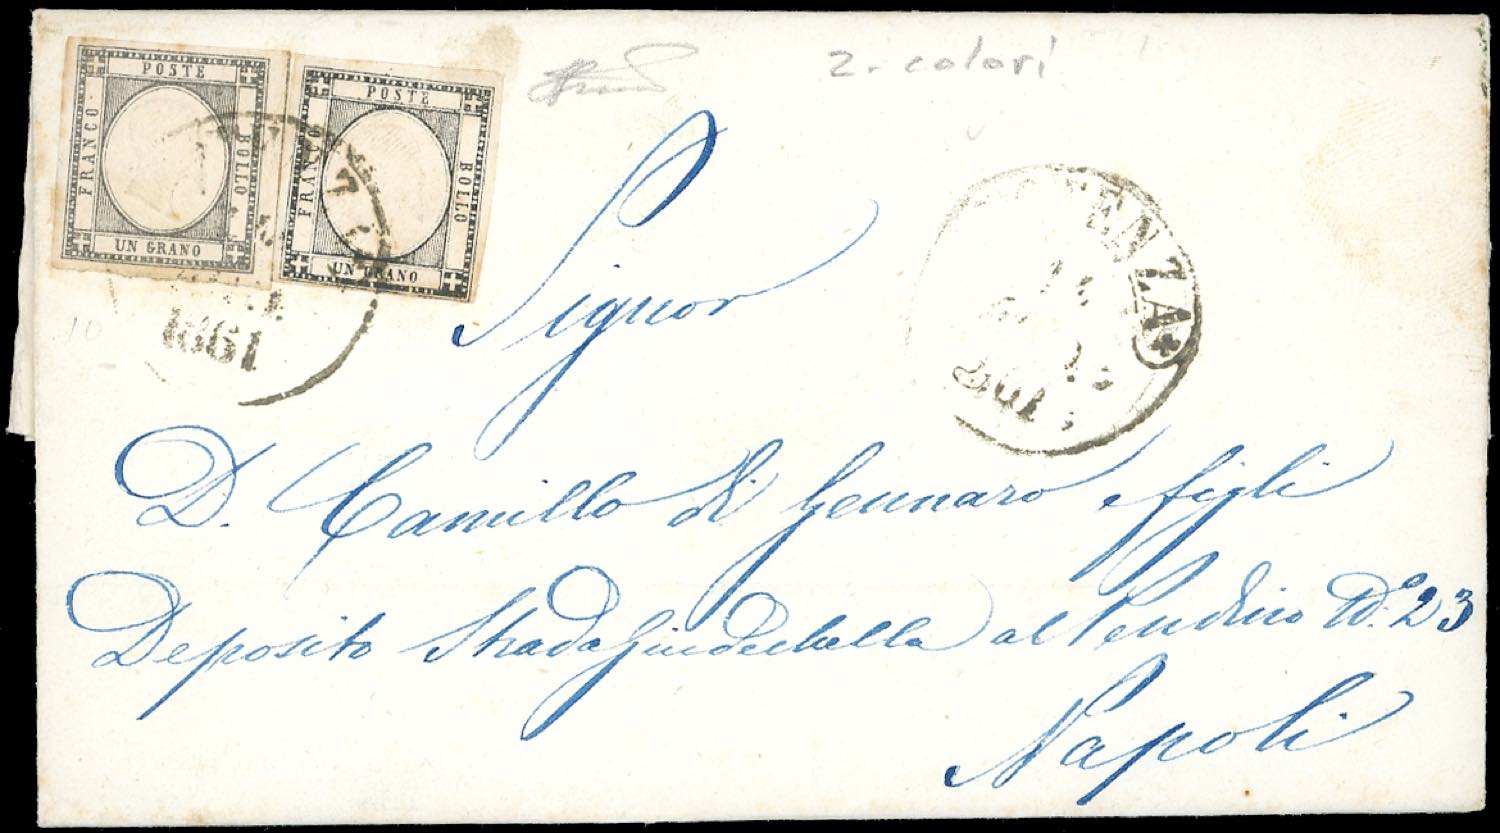 POSTE
FRANCO
BOLLO
UN GRANO
POSTE
FRANCO
BOLLO
UN GRANO
1861
2. colori
10
Signor
D. Camillo di Gennaro e figli
Deposito Strada Giudechella al Pendino N.º 23
Napoli